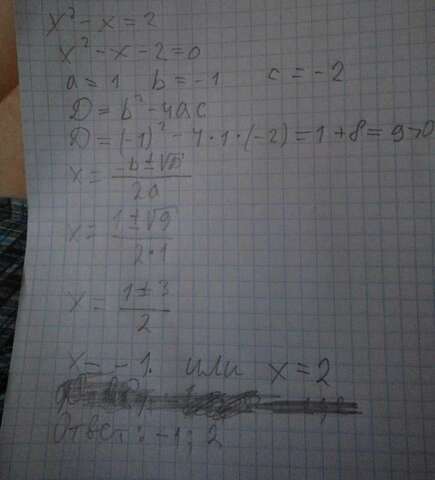 x² - x = 2
x² - x - 2 = 0
a = 1 b = -1 c = -2
D = b² - 4ac
D = (-1)² - 4·1·(-2) = 1 + 8 = 9 > 0
x = (-b ± √D) / 2a
x = (1 ± √9) / 2·1
x = (1 ± 3) / 2
x = -1. или x = 2
Ответ: -1; 2